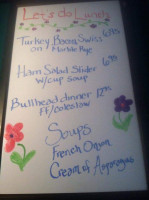 Let's do Lunch
Turkey Bacon Swiss 6.95
on Marble Rye
Ham Salad Slider 6.95
w/cup soup
Bullhead dinner 12.95
FF/coleslaw
Soups
French Onion
Cream of Asparagus